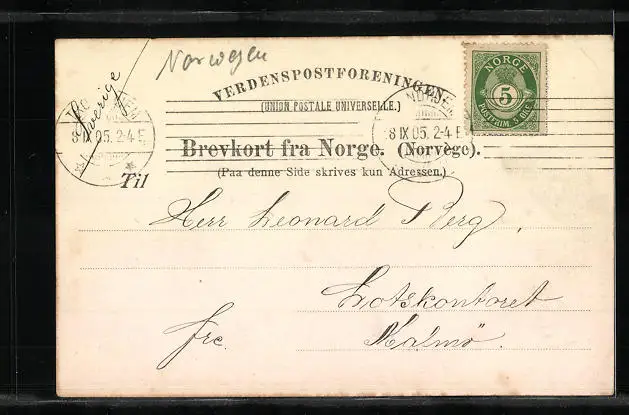 Norwegen
Sverige
VERDENSPOSTFORENINGEN.
(UNION POSTALE UNIVERSELLE.)
NORGE
5
POSTFRIM 5 ØRE
8 IX 05. 2-4 E
8 IX 05. 2-4 E
Brevkort fra Norge. (Norvège).
(Paa denne Side skrives kun Adressen.)
Til
Herr Leonard Berg,
Lotskontoret
frc. Malmö.